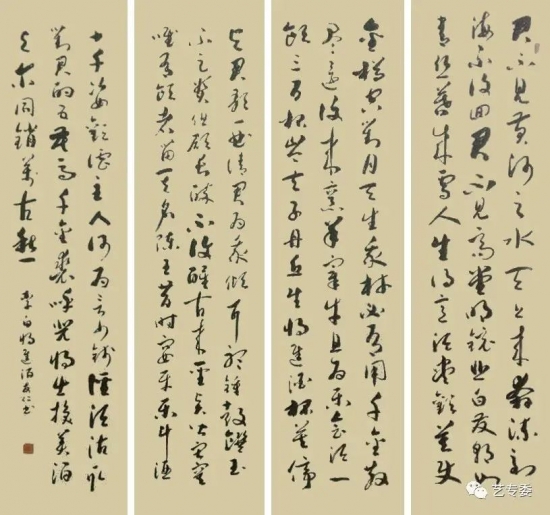 君不见黄河之水天上来奔流到
海不復回君不见高堂明镜悲白发朝如
青丝暮成雪人生得意须尽歡莫使
金樽空對月天生我材必有用千金散
尽還復来烹羊宰牛且为乐会须一
飲三百杯岑夫子丹丘生將進酒杯莫停
与君歌一曲請君为我傾耳聽鐘鼓饌玉
不足貴但願长醉不復醒古来聖賢皆寂寞
唯有飲者留其名陳王昔時宴平乐斗酒
十千恣歡謔主人何为言少钱徑须沽取
對君酌五花馬千金裘呼兒將出換美酒
与尔同銷萬古愁
李白將進酒友仁书
艺专委